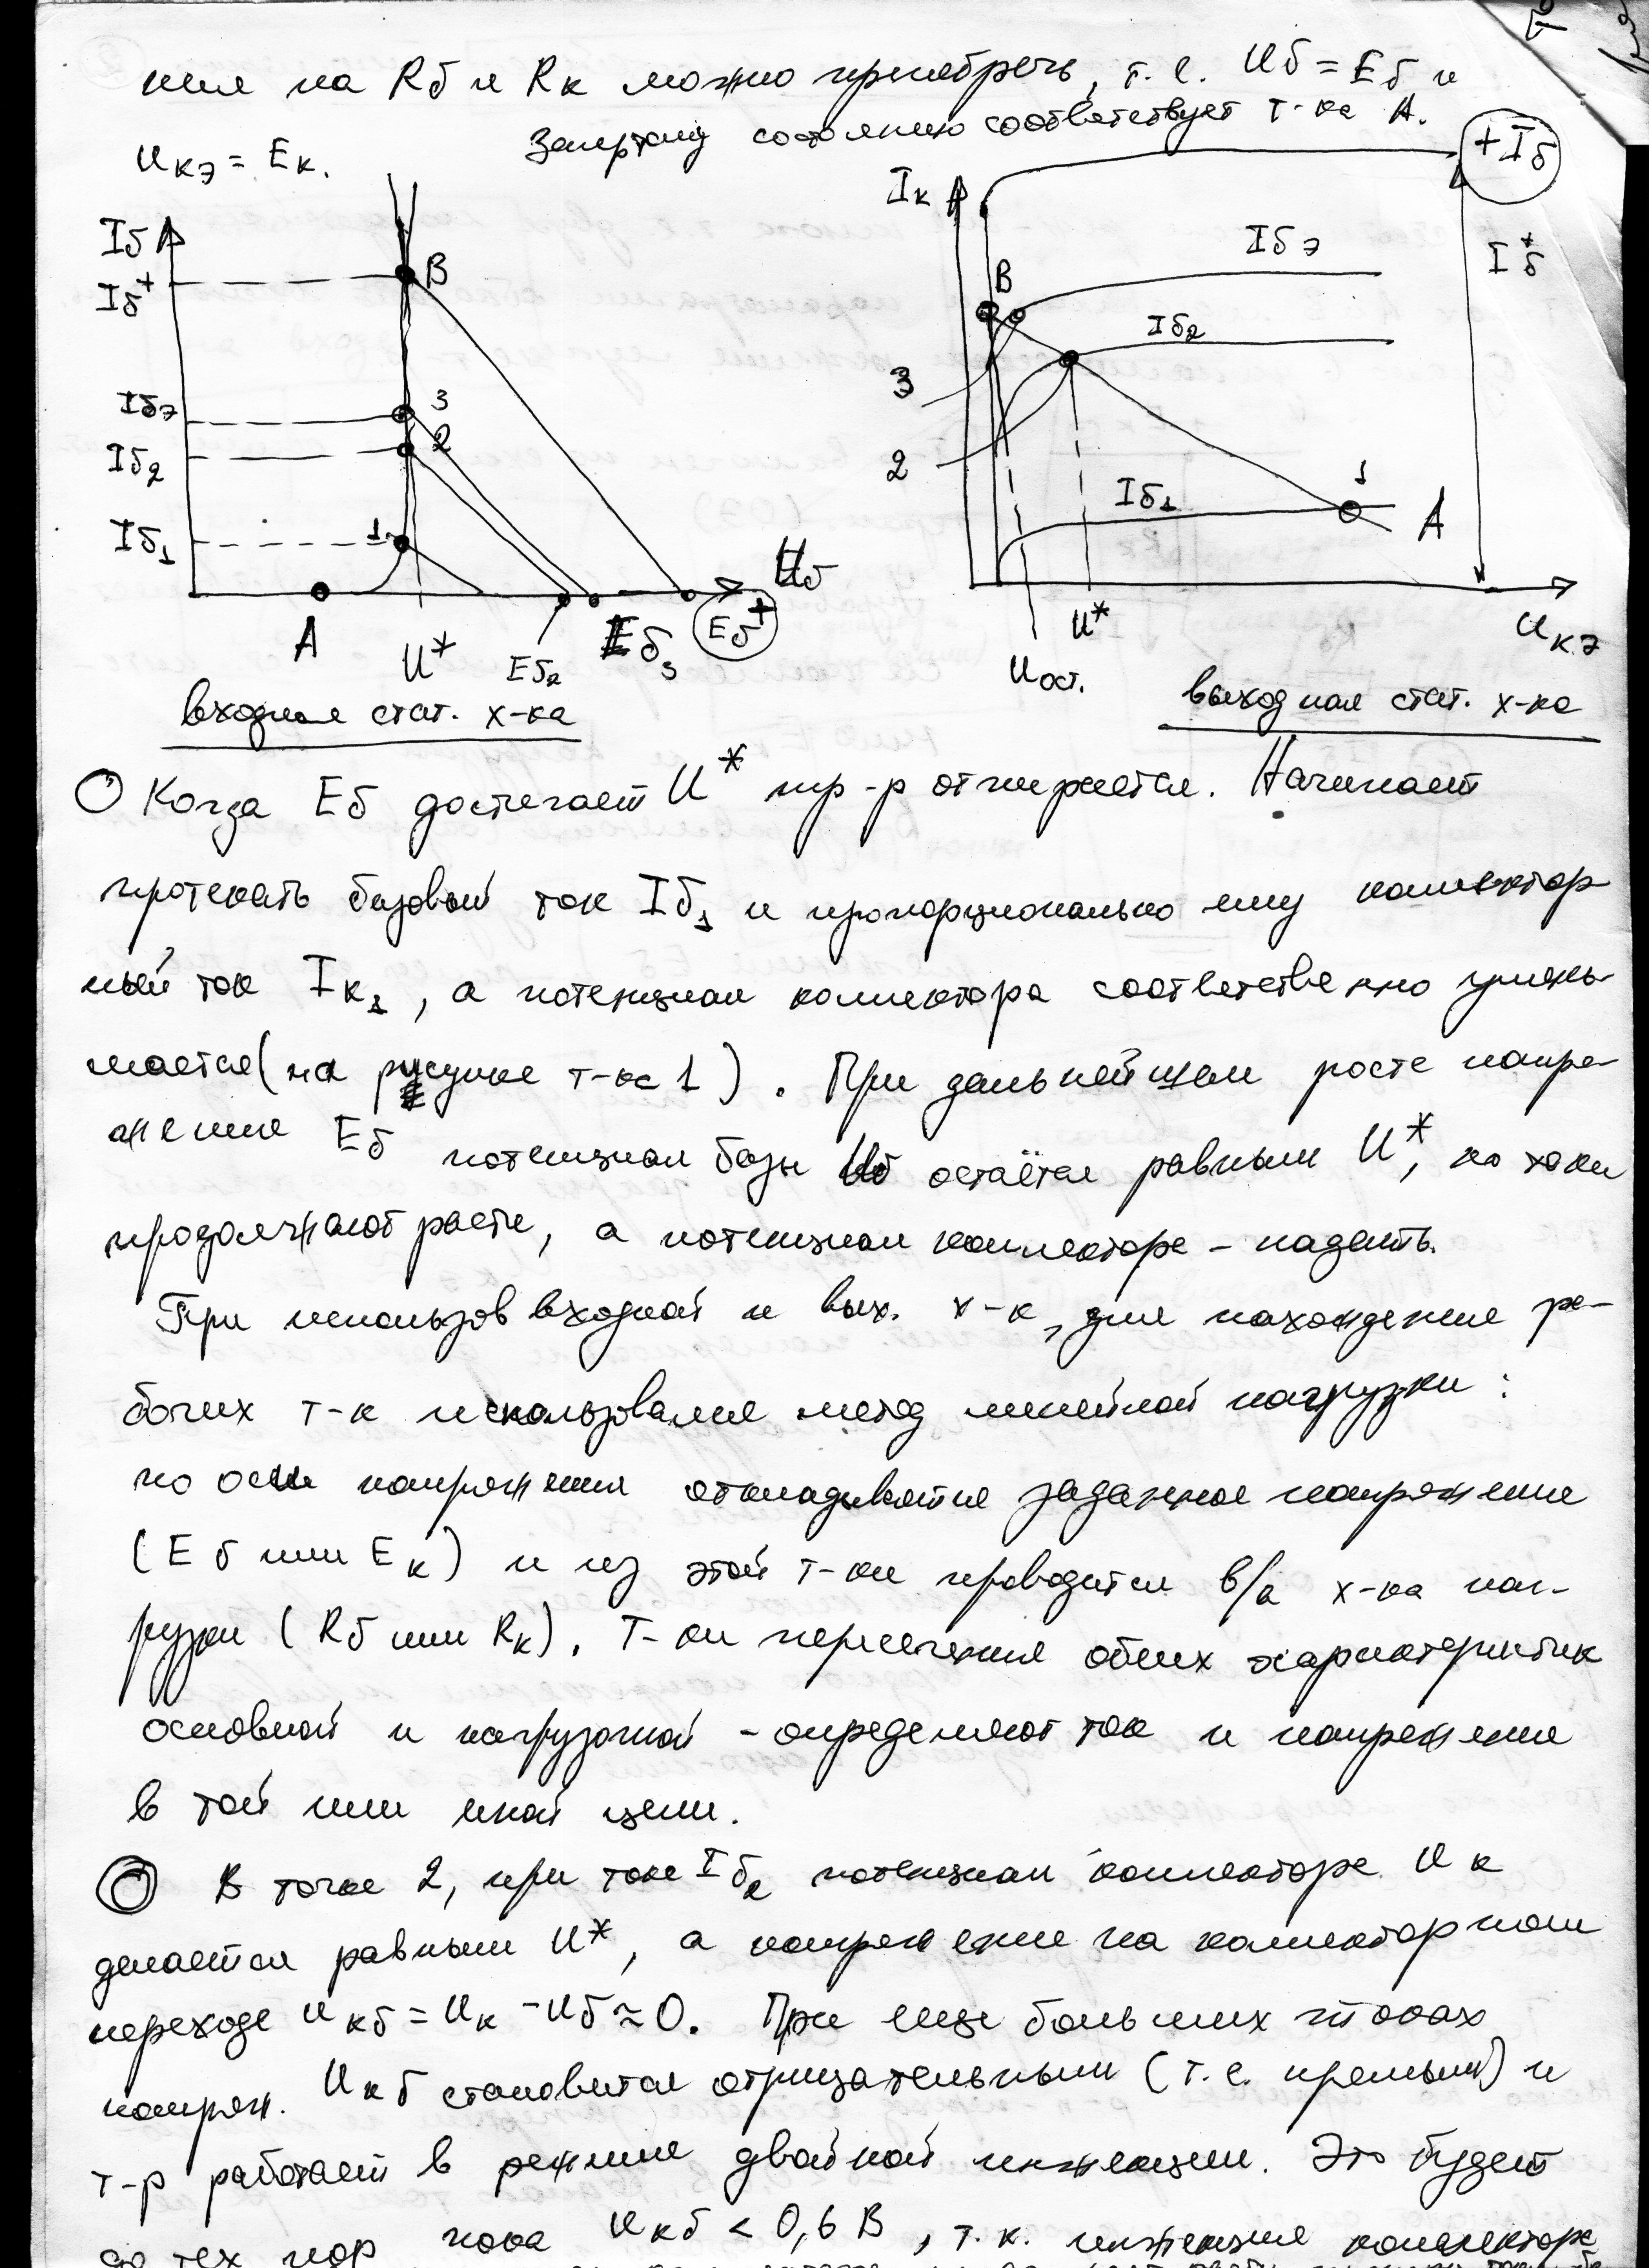 ния на Rб и Rк можно пренебречь, т.е. Uб = Eб и
Uкэ = Eк. Запертому состоянию соответствует т-ка А.
Iб
Iб⁺
B
Iб3
3
Iб2
2
Iб1
1
A
U*
Eб2
Eб3
Eб⁺
Uб
входная стат. х-ка
Iк
+Iб
Iб3
Iб⁺
B
Iб2
3
2
Iб1
1
A
U*
Uост.
Uкэ
выходная стат. х-ка
Когда Eб достигает U* тр-р отпирается. Начинает
протекать базовый ток Iб1 и пропорционально ему коллектор
ный ток Iк1, а потенциал коллектора соответственно умень-
шается (на рисунке т-ка 1). При дальнейшем росте напря-
жения Eб потенциал базы Uб остаётся равным U*, но токи
продолжают расти, а потенциал коллектора – падать.
При использов входной и вых. х-к, для нахождения ра-
бочих т-к использовался метод линейной нагрузки:
по оси напряжения откладывается заданное напряжение
(Eб или Eк) и из этой т-ки проводится в/а х-ка наг-
рузки (Rб или Rк). Т-ки пересечения обеих характеристик
основной и нагрузочной - определяют ток и напряжение
в той или иной цепи.
В точке 2, при токе Iб2 потенциал коллектора Uк
делается равным U*, а напряжение на коллекторном
переходе Uкб = Uк - Uб ≈ 0. При еще больших токах
напряж. Uкб становится отрицательным (т.е. прямым) и
т-р работает в режиме двойной инжекции. Это будет
до тех пор пока Uкб < 0,6 В, т.к. инжекция коллектора